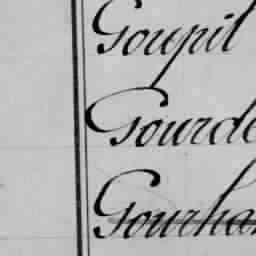 Goupil
Gourde
Gourha